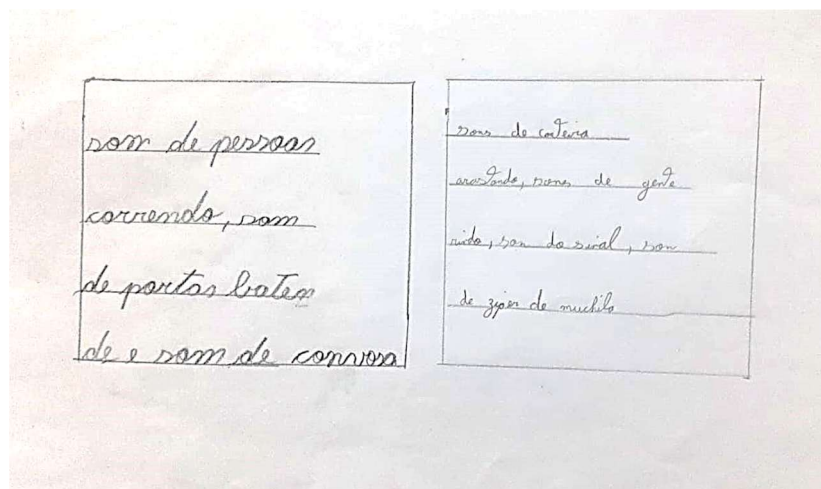 som de pessoas
correndo, som
de portas baten
de e som de convosa
sons de carteira
arastando, sons de gente
rindo, som do sinal, som
de ziper de muchila